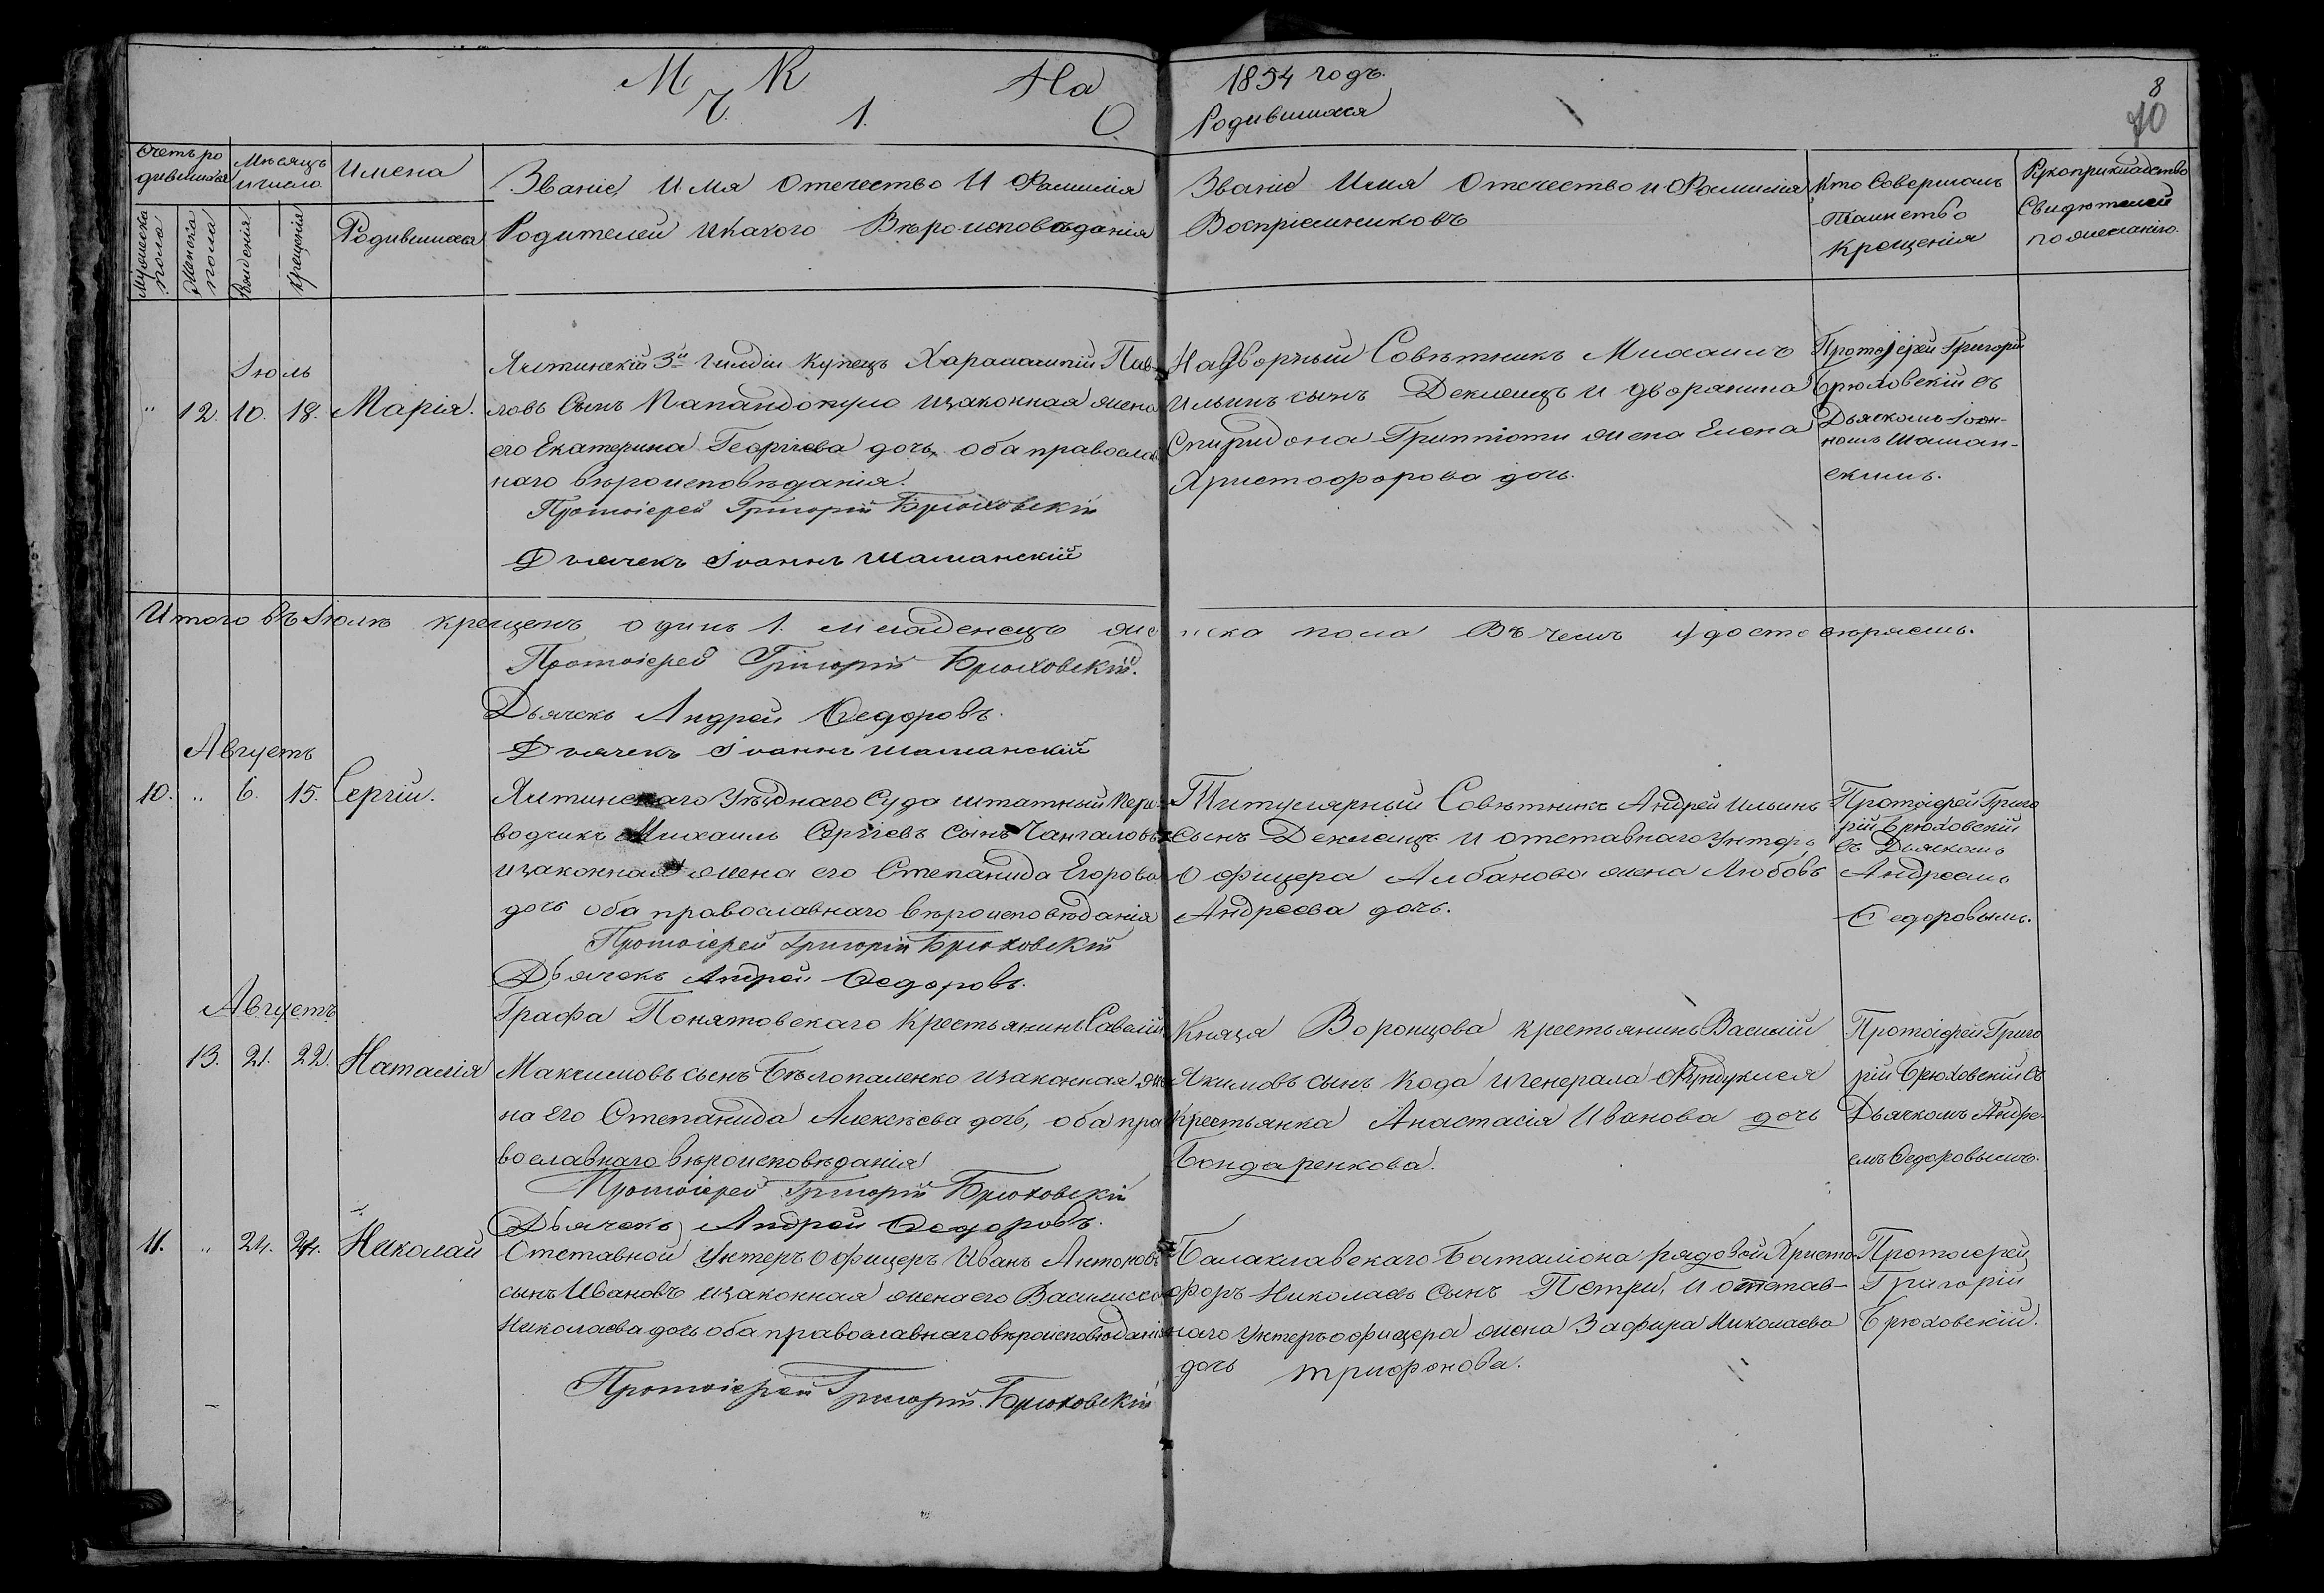 М К На
Ч. 1. О
1854 годъ.
Родившихся
8
40
Счетъ ро
дившихся
Мѣсяцъ
и число
Имена
Родившихся
Мужеска
пола
Женска
пола
Рожденія
Крещенія
Званіе, Имя Отечество И Фамилія
Родителей Икакого Вѣроисповѣданія
Званіе Имя Отечество и Фамилія
Воспріемниковъ
Кто Совершалъ
Таинство
Крещенія
Рукоприкладство
Свидѣтелей
по желанію.
Іюль
" 12. 10. 18. Марія.
Ялтинскій 3й Гилдіи Купецъ Харалампій Пав-
ловъ Сынъ Папандопуло изаконная жена
его Екатерина Георгіева дочь, оба православ
наго вѣроисповѣданія.
Протоіерей Григорій Брюховскій
Дьячекъ Іоаннъ Шаманскій
Надворный Совѣтникъ Михаилъ
Ильинъ сынъ Деклецъ и дворянина
Спиридона Гриппоти жена Елена
Христофорова дочь.
Протоіерей Григорій
Брюховскій съ
Дьячкомъ Іоан-
номъ Шаман-
скимъ.
Итого въ Іюлѣ крещенъ одинъ 1. младенецъ женска пола Въ чемъ удостовѣряемъ.
Протоіерей Григорій Брюховскій.
Дьячекъ Андрей Ѳедоровъ.
Дьячекъ Іоаннъ Шаманскій
Августъ
10. " 6. 15. Сергій.
Ялтинскаго Уѣзднаго Суда штатный Пере-
водчикъ Михаилъ Сергіевъ сынъ Чангаловъ
изаконная жена его Степанида Егорова
дочь оба православнаго вѣроисповѣданія
Протоіерей Григорій Брюховскій
Дьячекъ Андрей Ѳедоровъ.
Титулярный Совѣтникъ Андрей Ильинъ
сынъ Деклецъ и отставнаго Унтеръ
Офицера Албанова жена Любовь
Андреева дочь.
Протоіерей Григо
рій Брюховскій
съ Дьячкомъ
Андреемъ
Ѳедоровымъ.
Августъ
13. 21. 22. Наталія
Графа Понятовскаго Крестьянинъ Савелій
Максимовъ сынъ Бѣлопаленко изаконная же
на его Степанида Алексѣева дочь, оба пра
вославнаго вѣроисповѣданія
Протоіерей Григорій Брюховскій
Дьячекъ Андрей Ѳедоровъ.
Князя Воронцова крестьянинъ Василій
Якимовъ сынъ Кода и генерала Фундуклея
Крестьянка Анастасія Иванова дочь
Бондаренкова.
Протоіерей Григо
рій Брюховскій Съ
Дьячкомъ Андре
емъ Ѳедоровымъ.
11. " 24. 24. Николай
Отставной Унтеръ офицеръ Иванъ Антоновъ
сынъ Ивановъ изаконная жена его Василисса
Николаева дочь оба православнаго вѣроисповѣданія
Протоіерей Григорій Брюховскій
Балаклавскаго Баталіона рядовой Христо
форъ Николаевъ Сынъ Петри, и отстав-
наго Унтеръ офицера жена Зафира Николаева
дочь Трифонова.
Протоіерей
Григорій
Брюховскій.